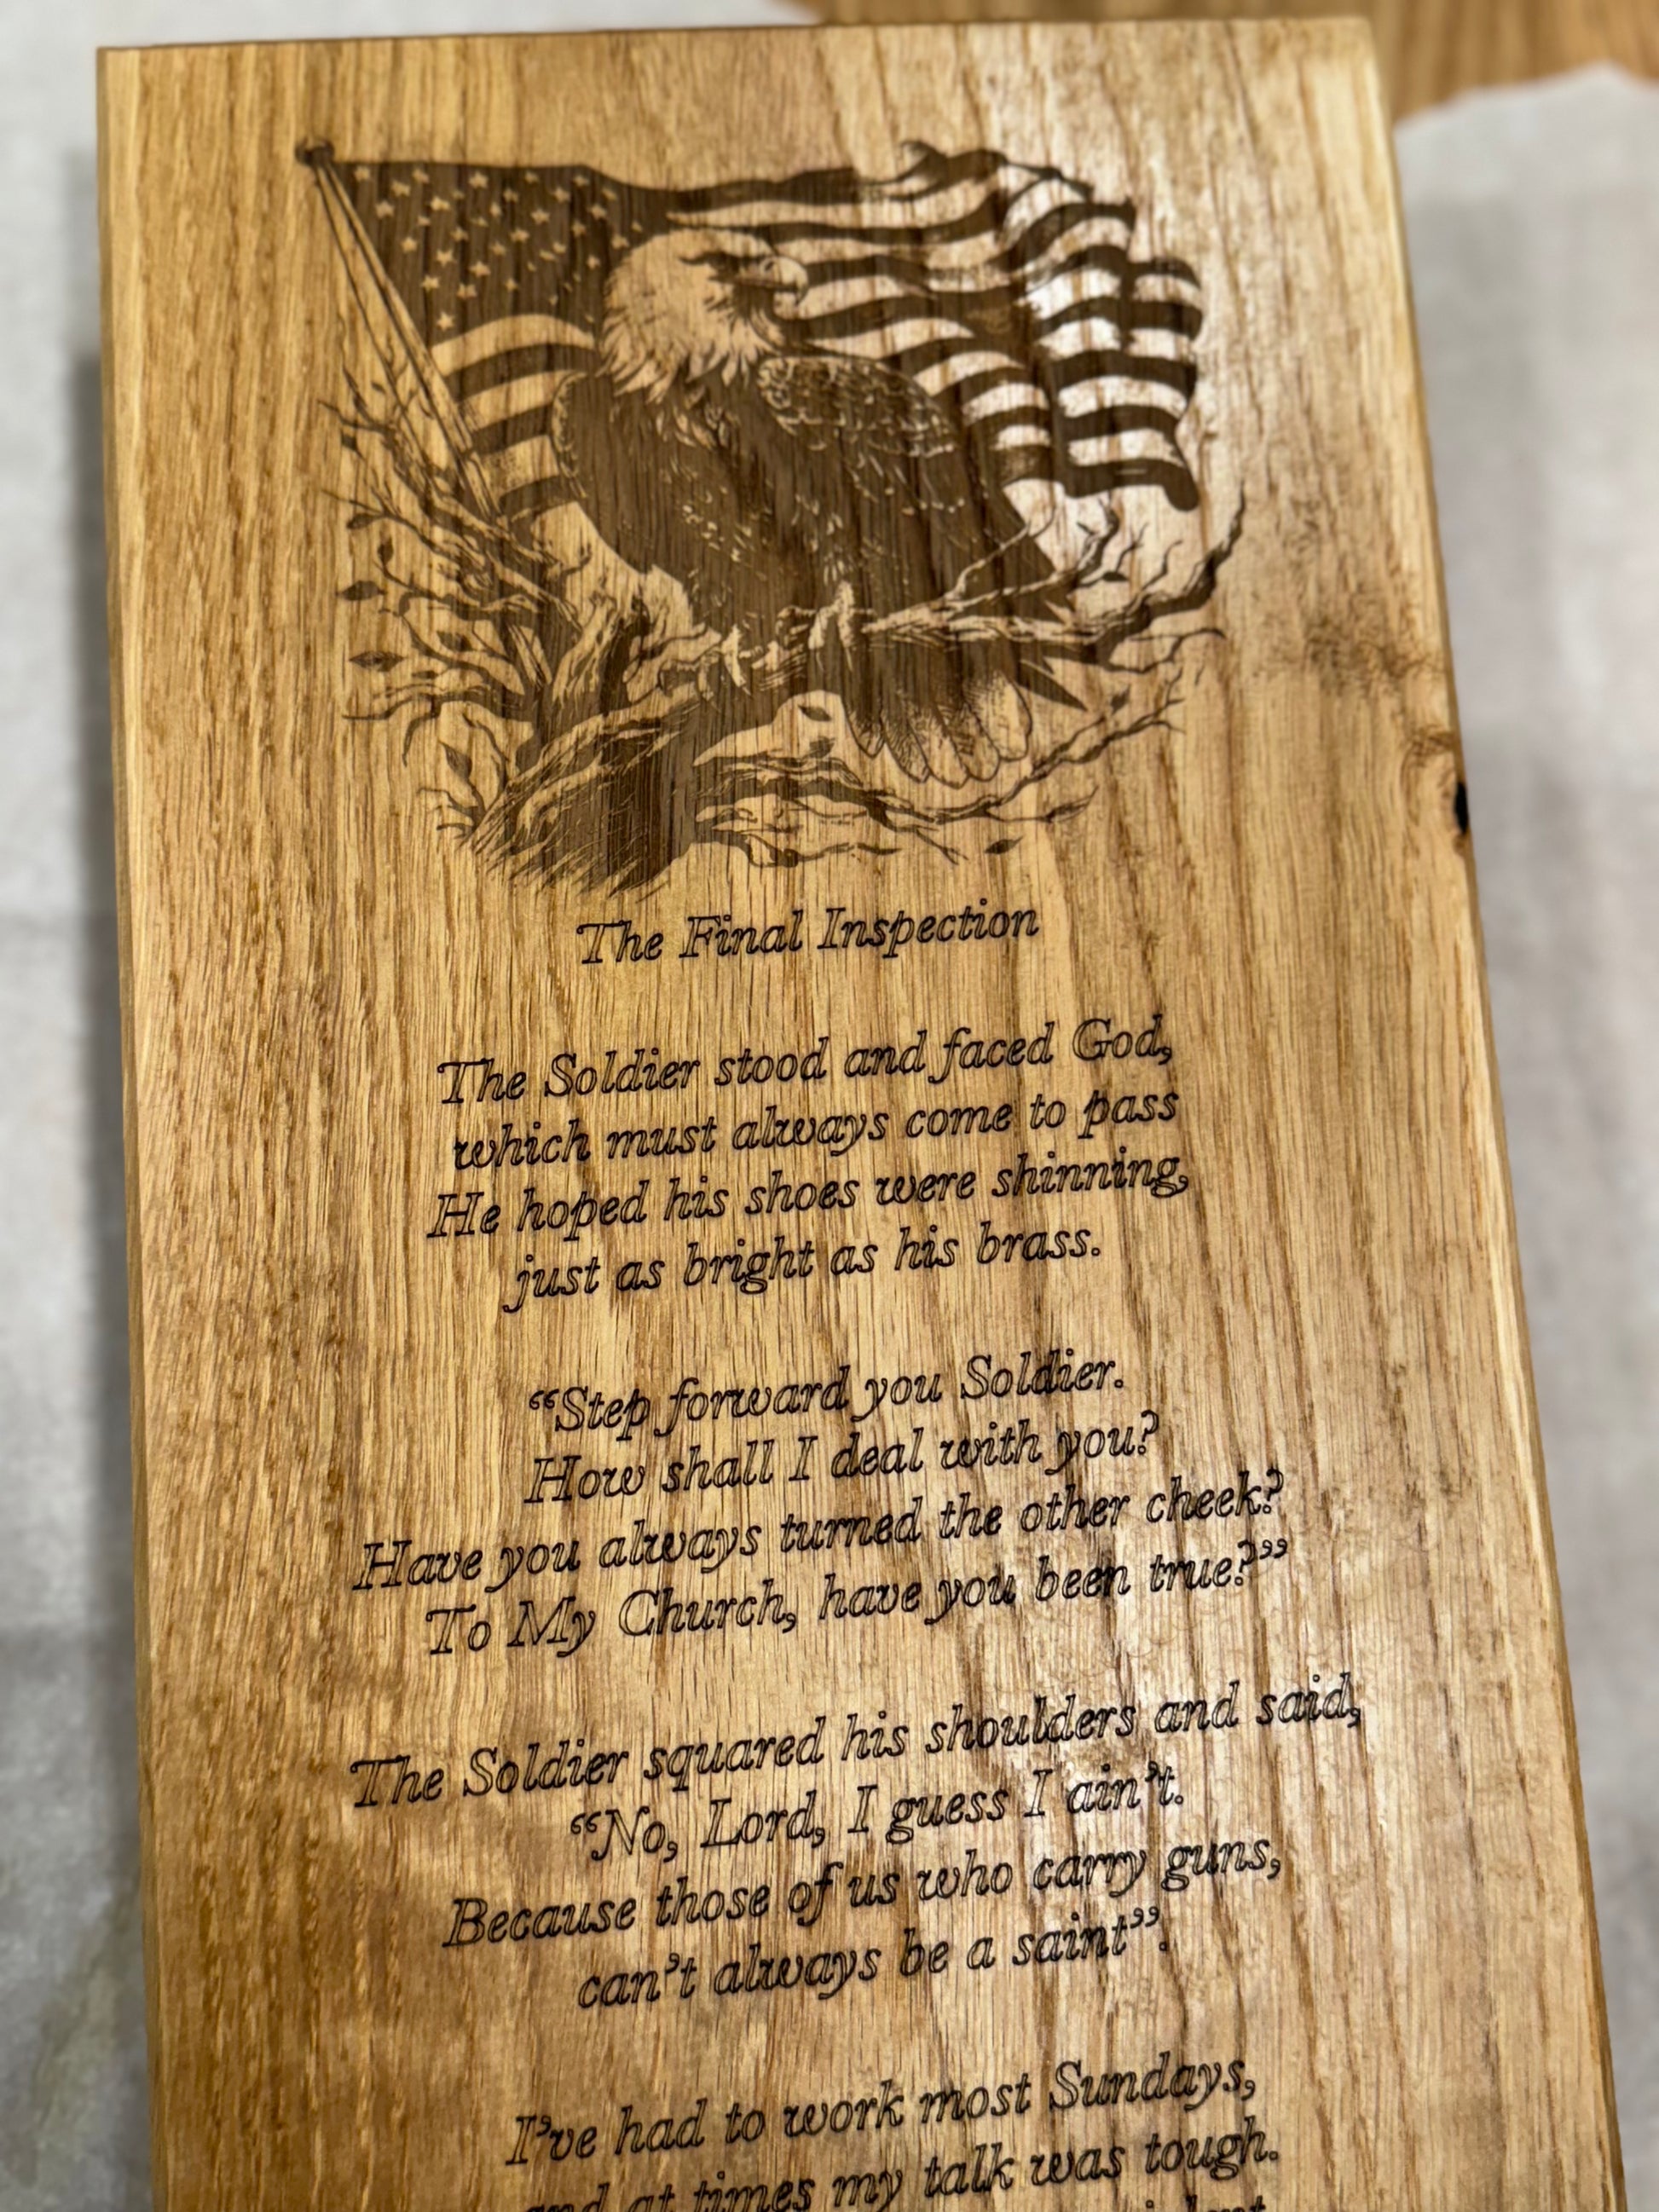 The Final Inspection
The Soldier stood and faced God,
which must always come to pass
He hoped his shoes were shinning,
just as bright as his brass.
“Step forward you Soldier.
How shall I deal with you?
Have you always turned the other cheek?
To My Church, have you been true?”
The Soldier squared his shoulders and said,
“No, Lord, I guess I ain’t.
Because those of us who carry guns,
can’t always be a saint”.
I’ve had to work most Sundays,
and at times my talk was tough.